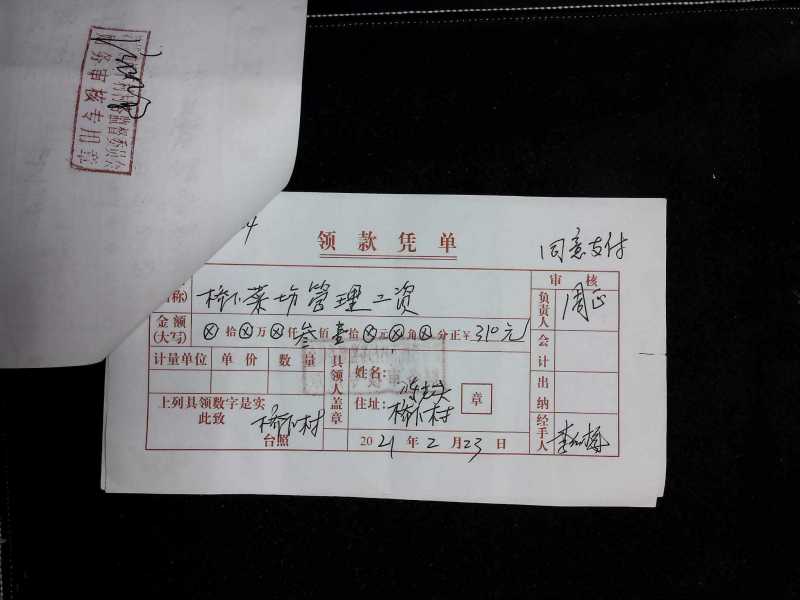 务审核专用章
领款凭单
同意支付
称) 桥下菜坊管理工资
审核
金额
(大写) ⊗拾⊗万⊗仟叁佰壹拾⊗元⊗角⊗分正¥310元
负责人 周正
计量单位 单价 数量
具领人盖章
姓名:
住址: 桥下村
章
会计
出纳
上列具领数字是实
此致
桥下村
台照
2021年2月23日
经手人